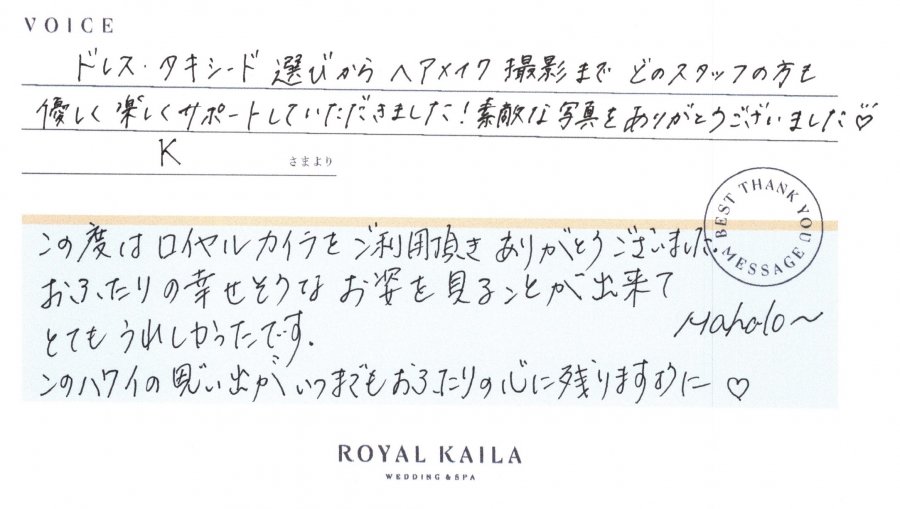 VOICE
ドレス・タキシード 選びから ヘアメイク 撮影まで どのスタッフの方も
優しく楽しくサポートしていただきました!素敵な写真をありがとうございました♡
K さまより
BEST THANK YOU MESSAGE
この度はロイヤルカイラをご利用頂きありがとうございました。
おふたりの幸せそうなお姿を見ることが出来て
とてもうれしかったです。
Mahalo〜
このハワイの思い出がいつまでもおふたりの心に残りますように♡
ROYAL KAILA
WEDDING & SPA